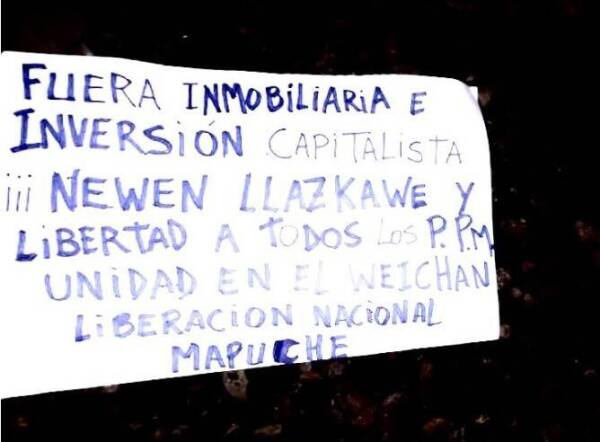 FUERA INMOBILIARIA E
INVERSIÓN CAPITALISTA
¡¡¡ NEWEN LLAZKAWE Y
LIBERTAD A TODOS LOS P.P.M
UNIDAD EN EL WEICHAN
LIBERACION NACIONAL
MAPUCHE